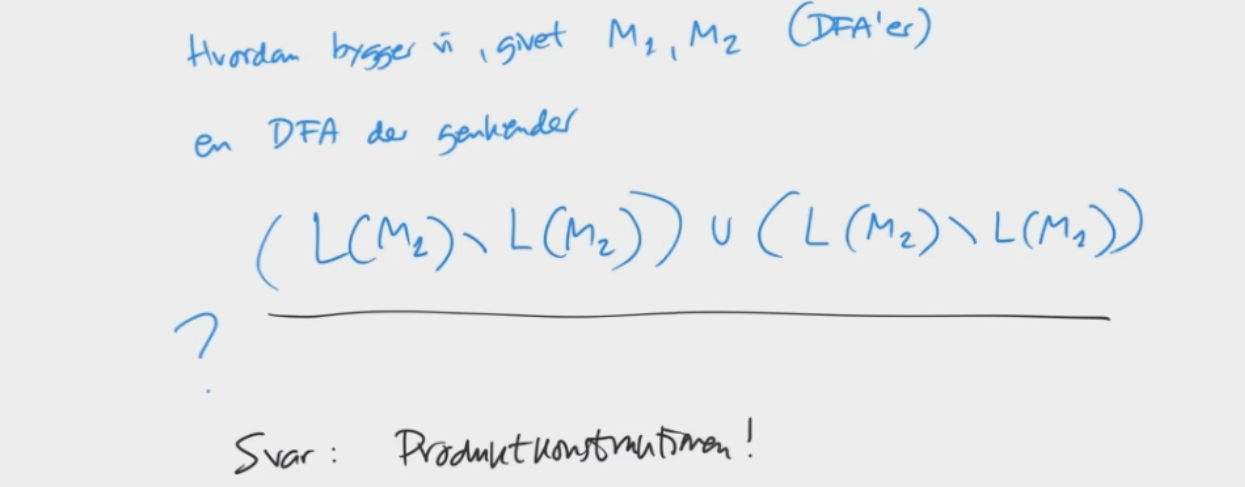 Hvordan bygger vi, givet M₁, M₂ (DFA'er)
en DFA der genkender
(L(M₁)∖L(M₂)) ∪ (L(M₂)∖L(M₁))
?
Svar: Produktkonstruktionen!